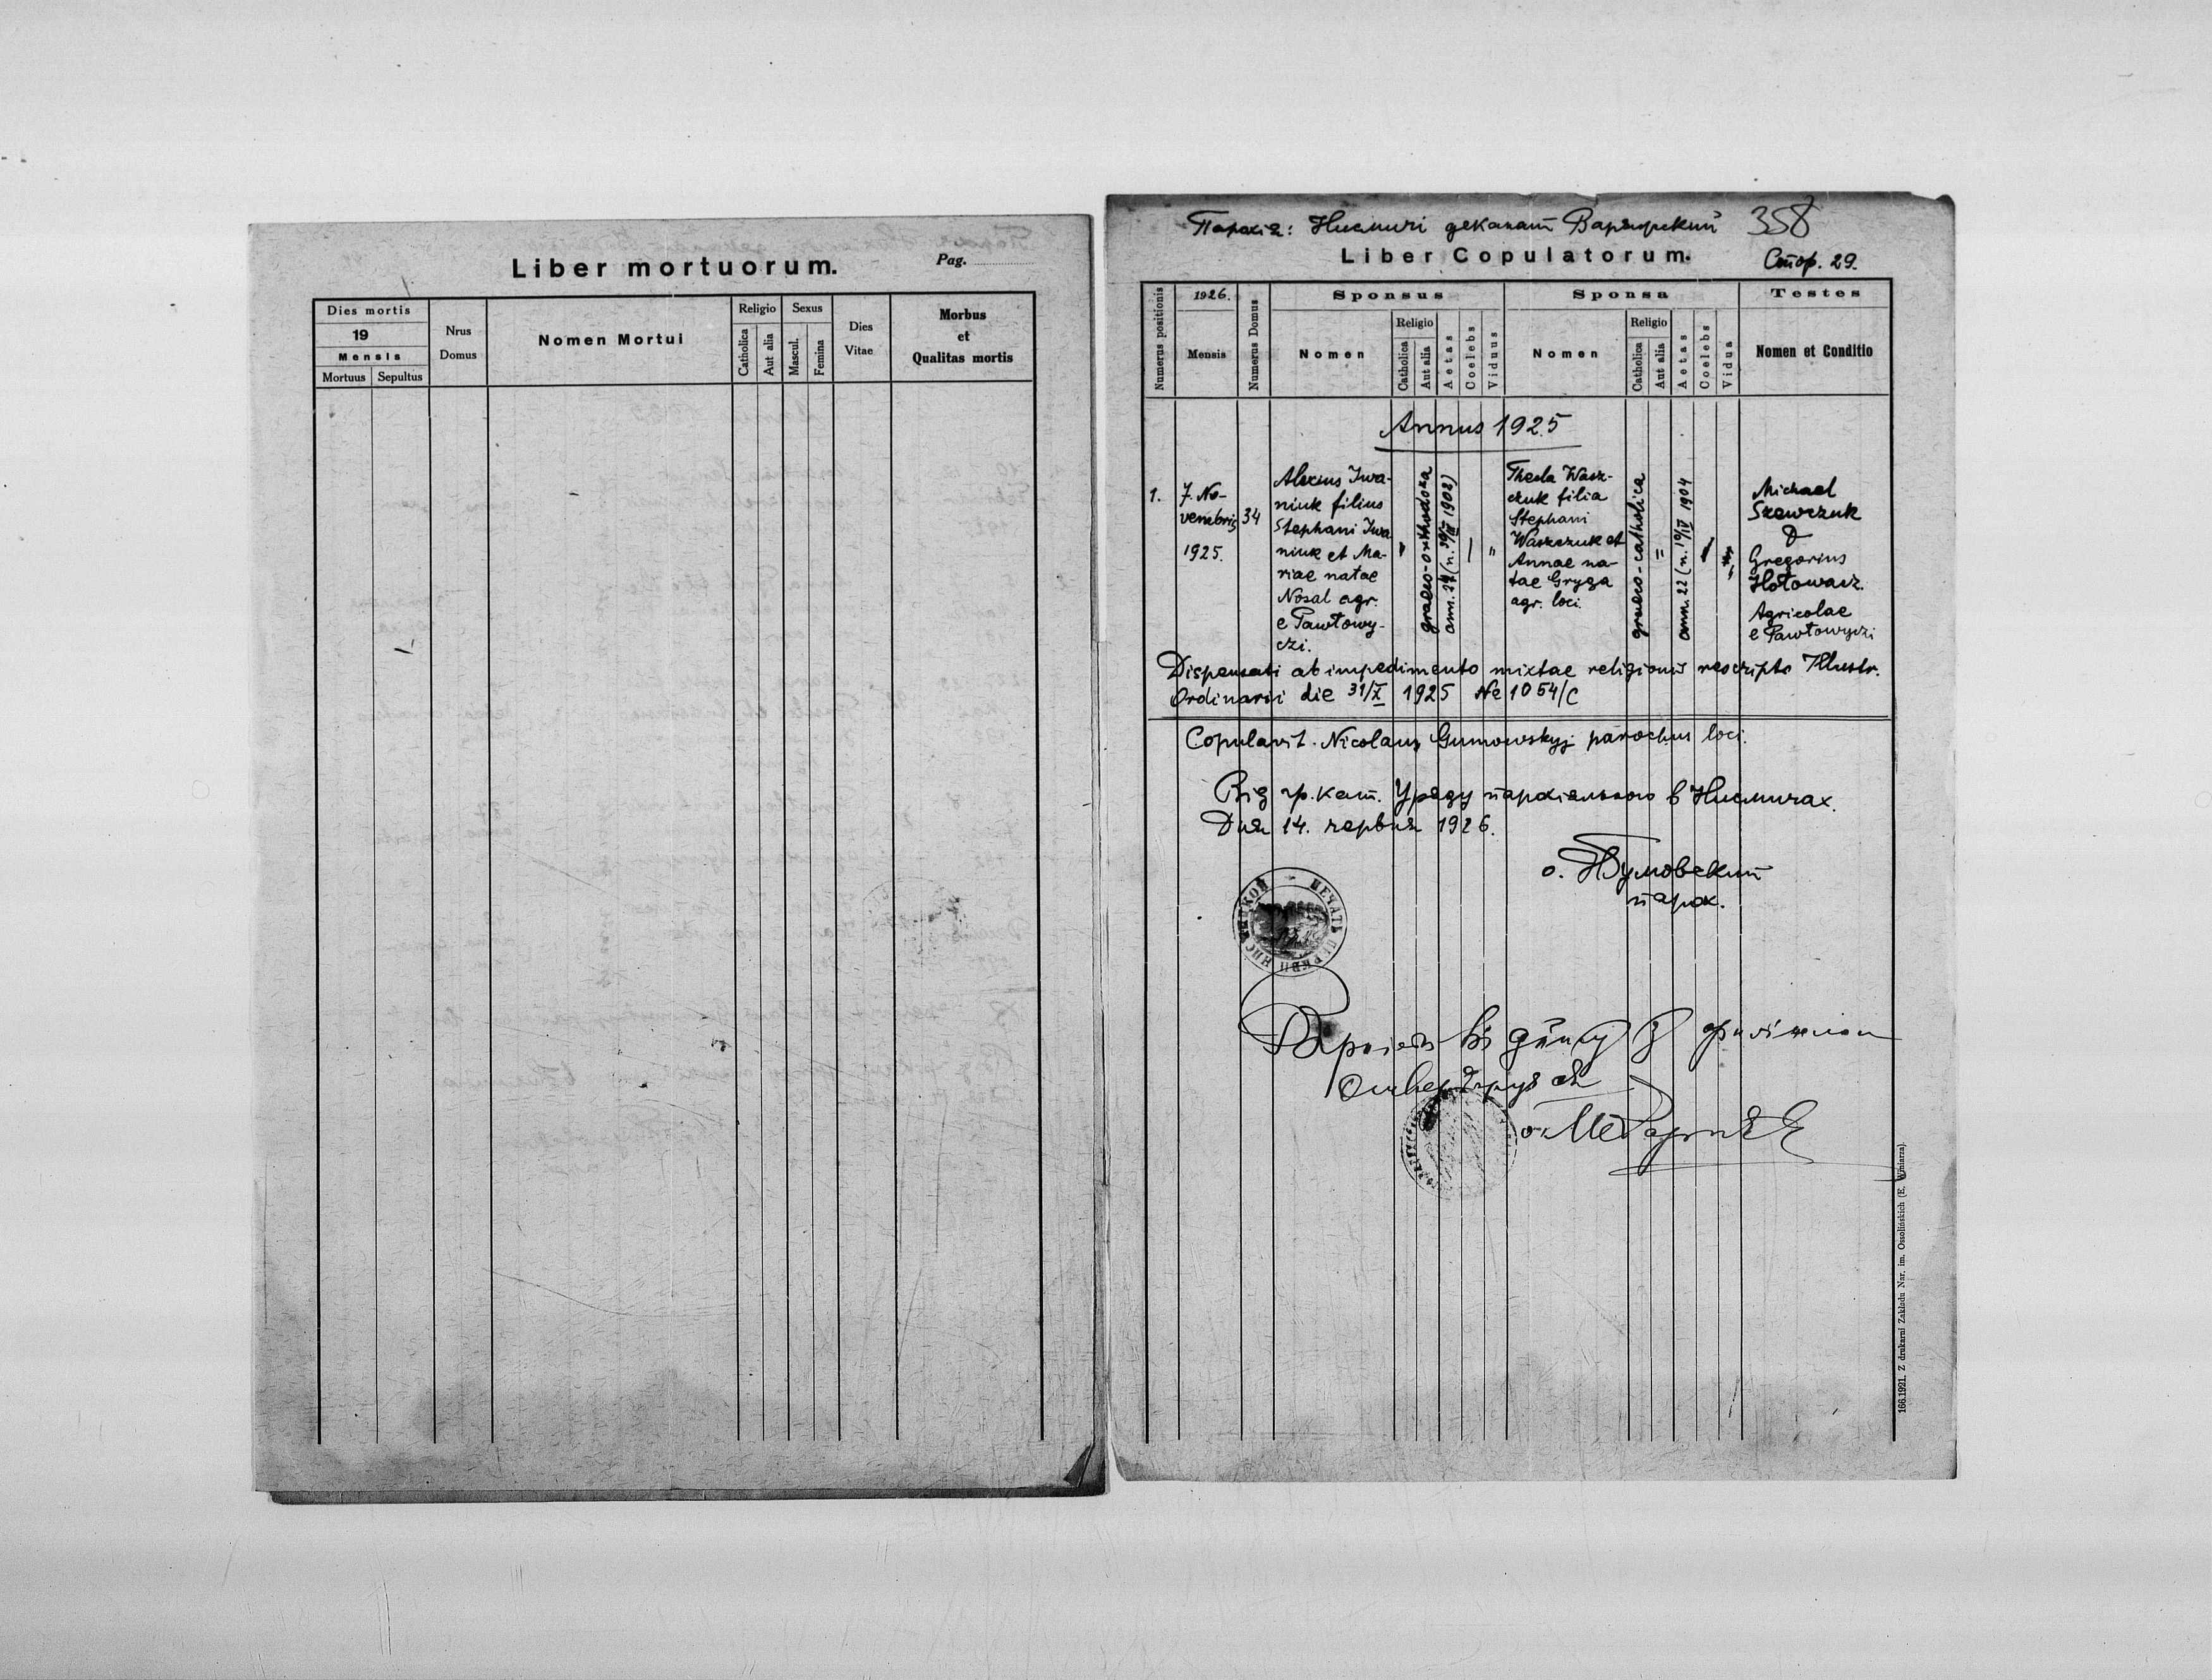 Liber mortuorum.
Pag.
Dies mortis
19
Mensis
Mortuus Sepultus
Nrus
Domus
Nomen Mortui
Religio
Catholica
Aut alia
Sexus
Mascul.
Femina
Dies
Vitae
Morbus
et
Qualitas mortis
Парохія: Нисмичі деканат Варяжский 358
Liber Copulatorum.
Стор. 29.
Numerus positionis
1926.
Mensis
Numerus Domus
Sponsus
Nomen
Religio
Catholica
Aut alia
Aetas
Coelebs
Viduus
Sponsa
Nomen
Religio
Catholica
Aut alia
Aetas
Coelebs
Vidua
Testes
Nomen et Conditio
Annus 1925
1.
7. No-
vembris
1925.
34
Alexius Iwa-
niuk filius
Stephani Iwa
niuk et Ma-
riae natae
Nosal agr.
e Pawłowy-
czi.
"
graeco-orthodoxa
ann. 24 (n. 30/III 1902)
"
Thecla Wasz-
czuk filia
Stephani
Waszczuk et
Annae na-
tae Gryga
agr. loci.
graeco-catholica
"
ann. 22 (n. 19/IV 1904
"
Michael
Szewczuk
&
Gregorius
Hołowacz.
Agricolae
e Pawłowyczi
Dispensati ab impedimento mixtae religionis rescripto Illustr.
Ordinarii die 31/X 1925 № 1054/C
Copulavit. Nicolaus Gumowskyj parochus loci.
Від гр. кат. Уряду парохіяльного в Нисмичах.
Дня 14. червня 1926.
о. Гумовский
парох.
ПЕЧАТЬ ЦЕРКВИ
166.1921. Z drukarni Zakładu Nar. im. Ossolińskich (E. Winiarza).